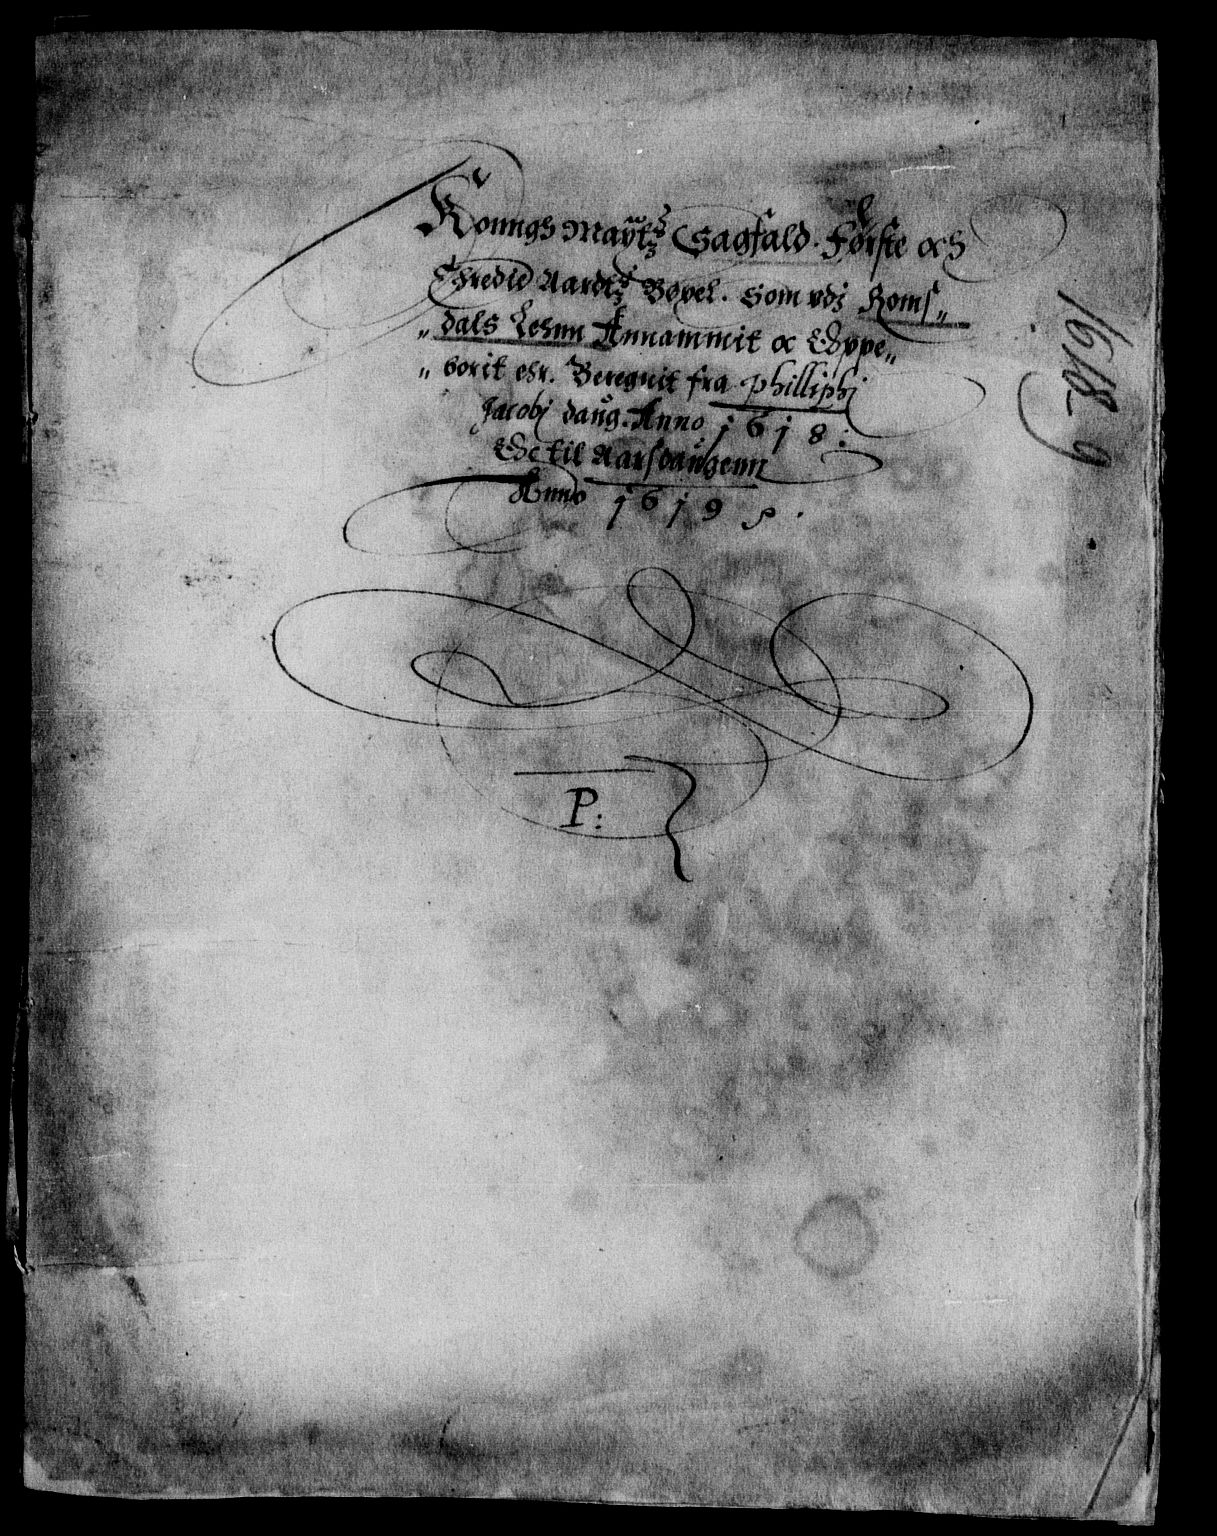 Konngs Maÿtz Sagfald. Første och
Thredie Aardtz Bøxel. Som vdj Roms„
„dals Lehnn Annammit oc Oppe„
„borit ehr. Beregnit fra Philliphj
Jacobj daug. Anno 1618:
Oc til Aarsdaugenn
Anno 1619
P:
1618-9